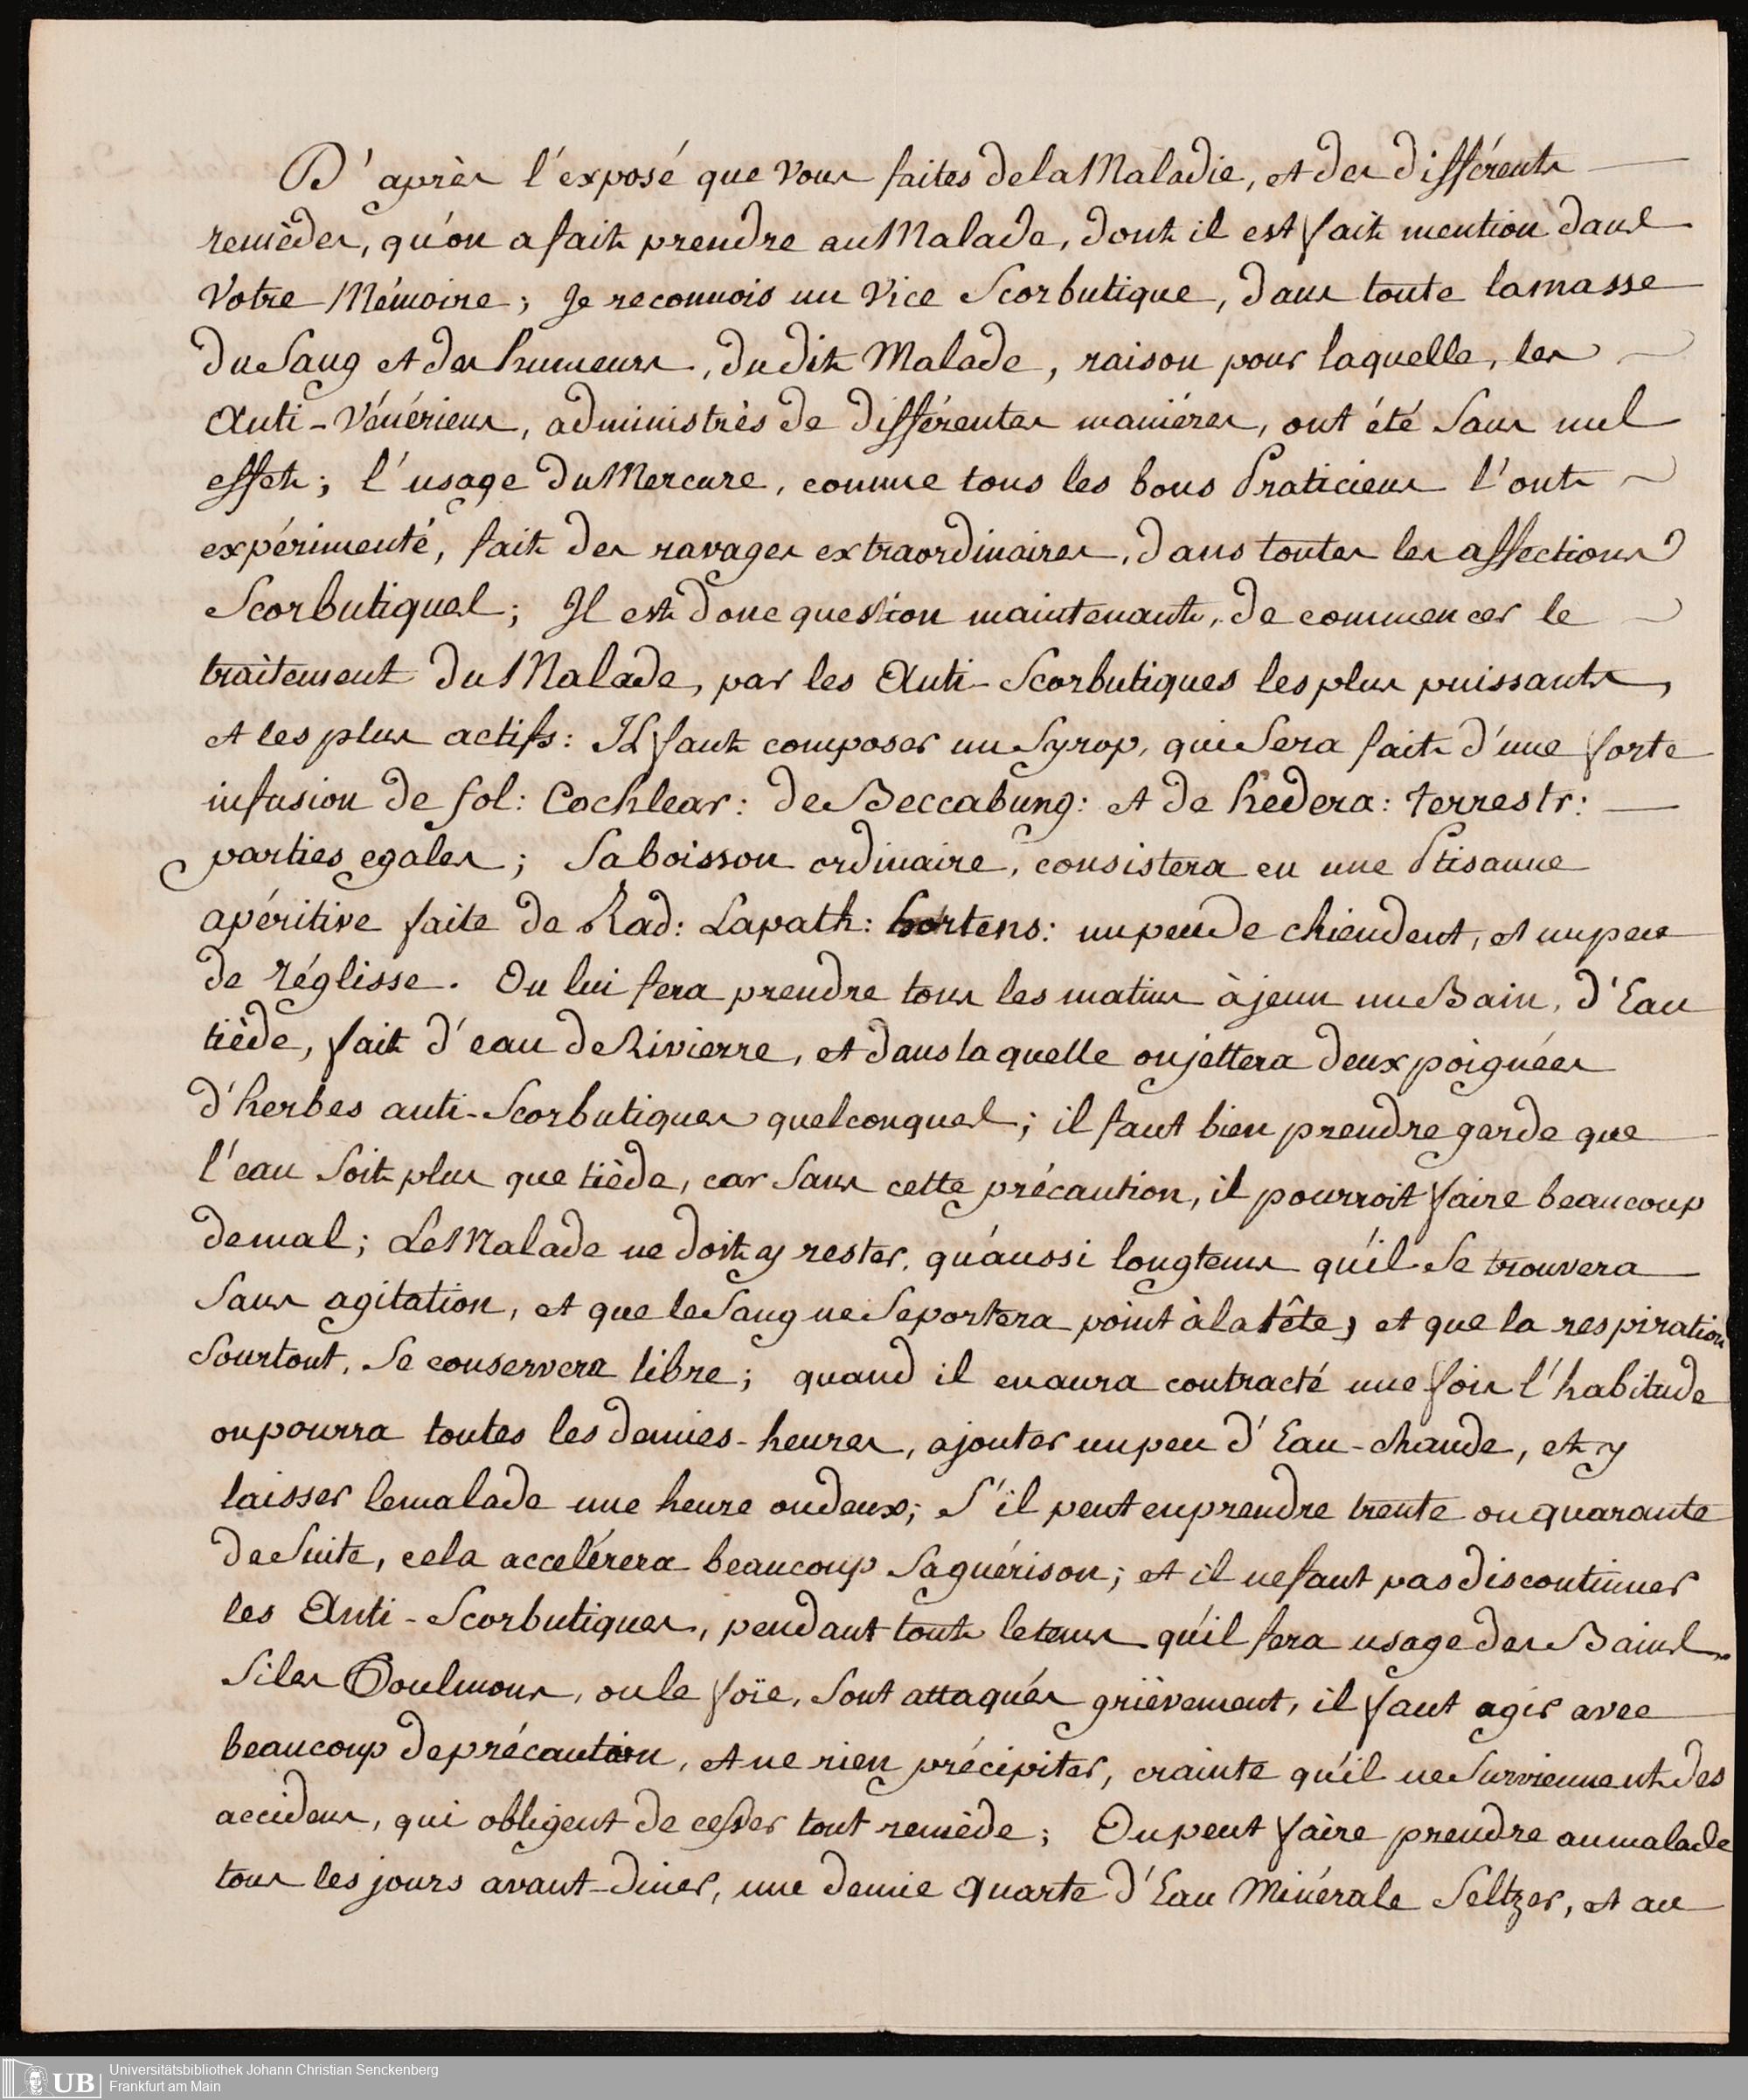 D'après l'exposé que Vous faites de la Maladie, et des différents
remèdes, qu'on a fait prendre au Malade, dont il est fait mention dans
Votre Mémoire; Je reconnois un Vice Scorbutique, dans toute la masse
du Sang et des humeurs, du dit Malade, raison pour laquelle, les
Anti-Vénériens, administrès de différentes maniéres, ont été Sans nul
effet; l'usage du Mercure, comme tous les bons Praticiens l'ont
expérimenté, fait des ravages extraordinaires, dans toutes les affections
Scorbutiques; Il est donc question maintenant, de commencer le
traitement du Malade, par les Anti-Scorbutiques les plus puissants,
et les plus actifs: Il faut composer un Syrop, qui Sera fait d'une forte
infusion de fol: Cochlear: de Beccabung: et de hedera: terrestr:
parties egales; Sa boisson ordinaire, consistera en une Ptisanne
apéritive faite de Rad: Lapath: hortens: un peu de chiendent, et un peu
de réglisse. On lui fera prendre tous les matins à jeun un Bain, d'Eau
tiède, fait d'eau de Rivierre, et dans laquelle on jettera deux poignées
d'herbes anti-Scorbutiques quelconques; il faut bien prendre garde que
l'eau Soit plus que tiède, car Sans cette précaution, il pourroit faire beaucoup
de mal; Le Malade ne doit y rester, qu'aussi longtems qu'il Se trouvera
Sans agitation, et que le Sang ne Se portera point à la tête, et que la respiration
Sourtout, Se conservera libre; quand il en aura contracté une fois l'habitude
on pourra toutes les demies-heures, ajouter un peu d'Eau-chaude, et y
laisser le malade une heure ou deux; S'il peut en prendre trente ou quarante
de Suite, cela accelérera beaucoup Sa guérison; et il ne faut pas discontinuer
les Anti-Scorbutiques, pendant tout le tems qu'il fera usage des Bains
Si les Poulmons, ou le foïe, Sont attaqués grièvement, il faut agir avec
beaucoup de précaution, et ne rien précipiter, crainte qu'il ne Surviennent des
accidens, qui obligent de cesser tout remède; On peut faire prendre au malade
tous les jours avant-diner, une demie quarte d'Eau Minérale Seltzer, et au
UB
Universitätsbibliothek Johann Christian Senckenberg
Frankfurt am Main